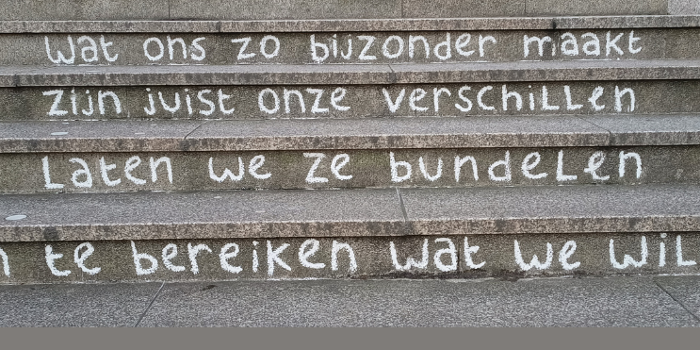 Wat ons zo bijzonder maakt
zijn juist onze verschillen
Laten we ze bundelen
te bereiken wat we